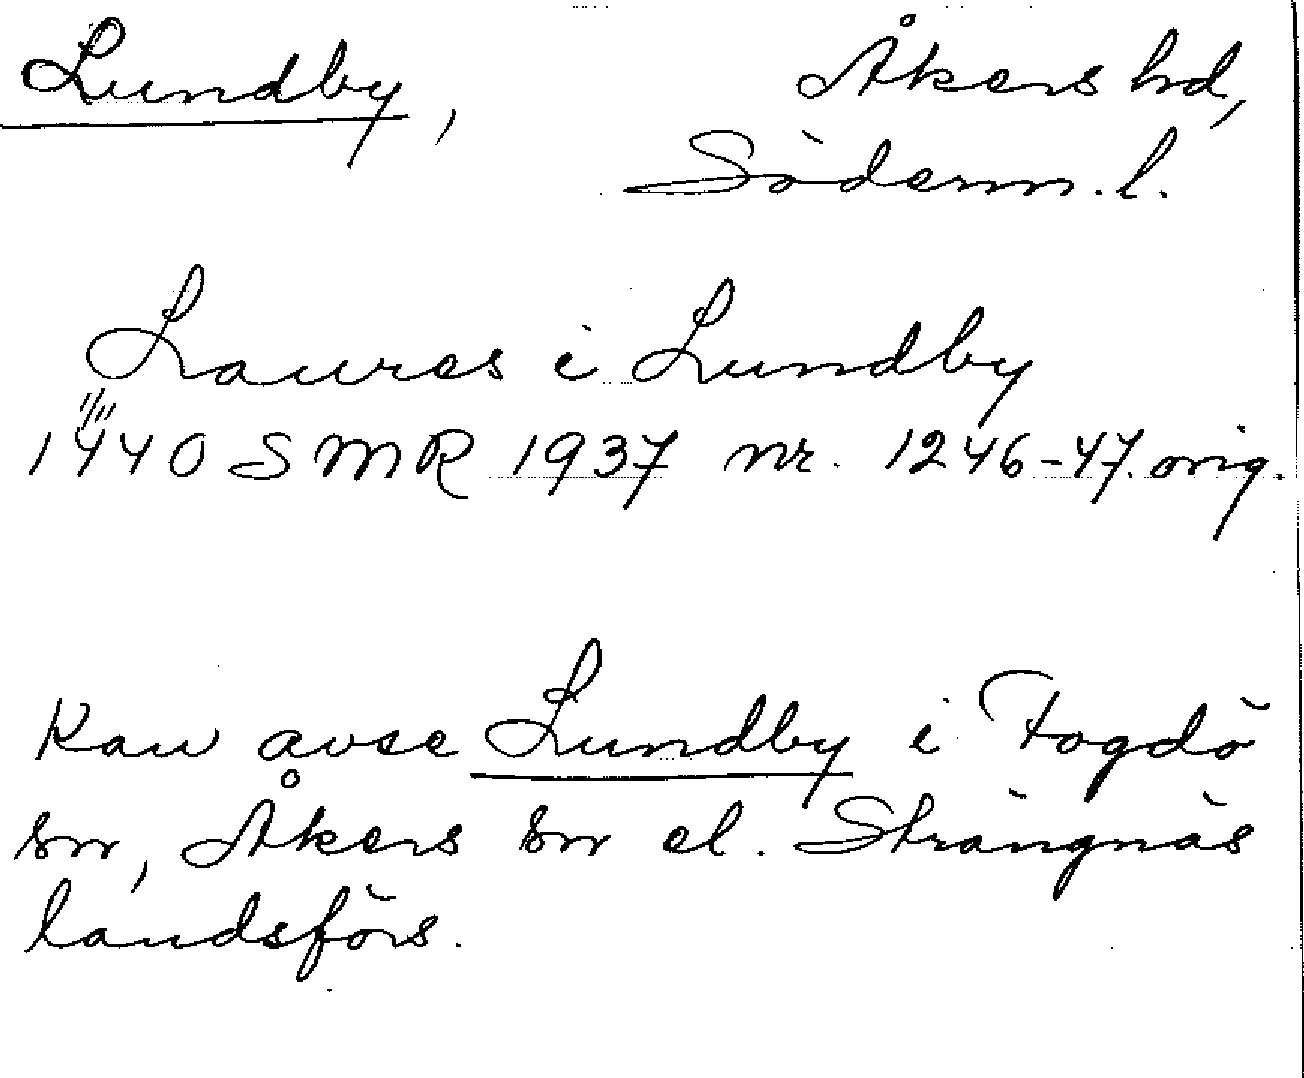 Lundby, Åkers hd,
Söderm.l.
Laures i Lundby
11/11
1440 SMR 1937 nr. 1246-47. orig.
Kan avse Lundby i Fogdö
sn, Åkers sn el. Strängnäs
landsförs.